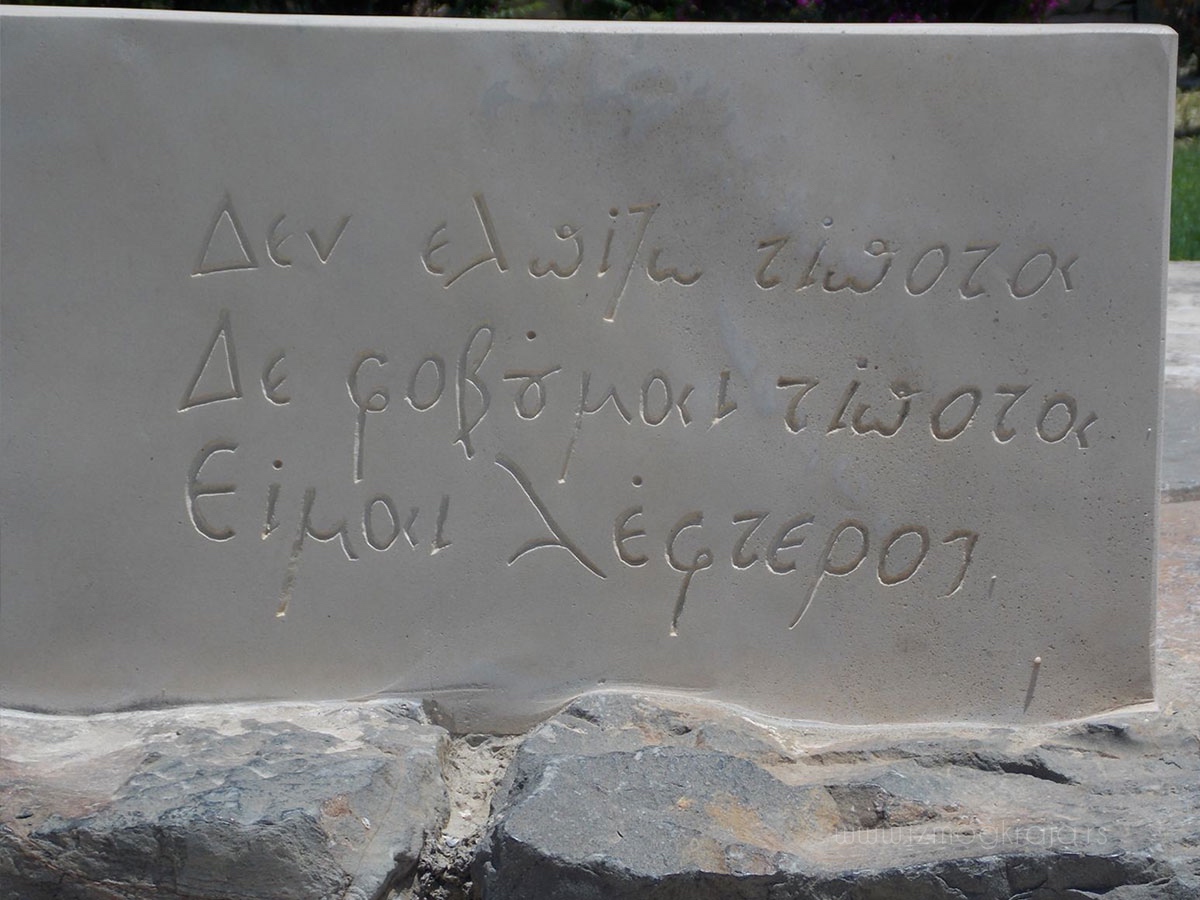 Δεν ελπίζω τίποτα
Δε φοβȣ́μαι τίποτα
Είμαι λέφτερος